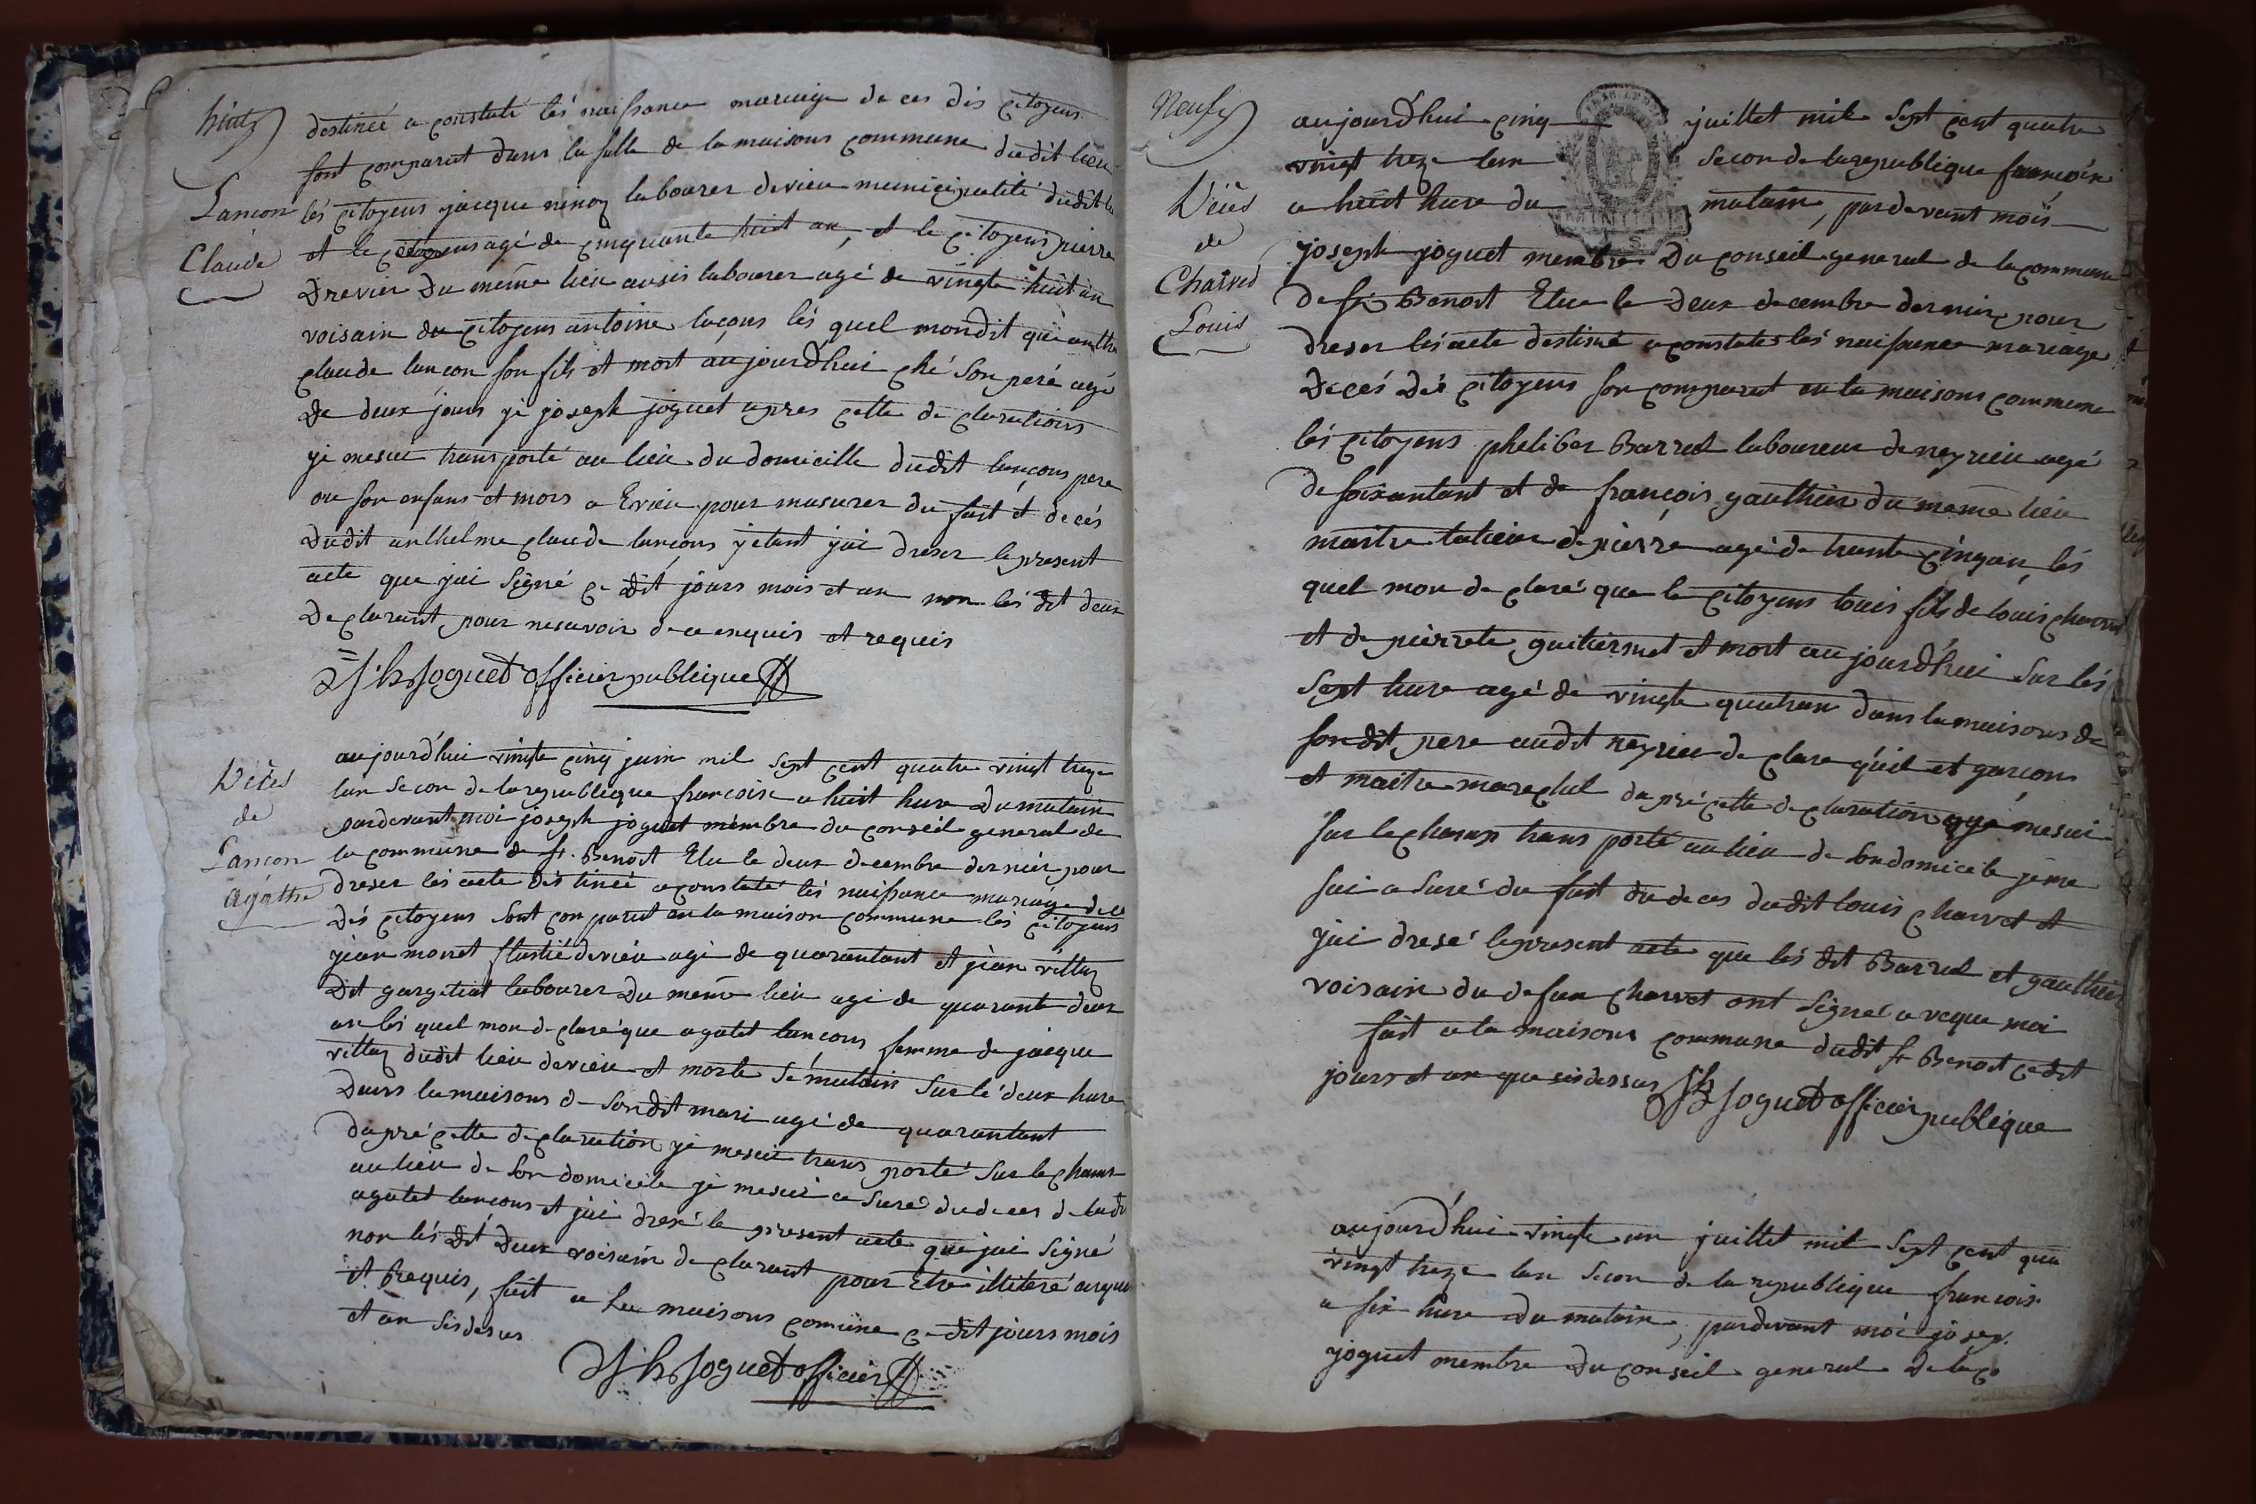 huit
destinéé a constaté lés naissance mariage de ces dés citoyens
sont comparut dans la salle de la maisons commune dudit lieu
Lancon
lés citoyens jacque ninoz labourer devieu municipalité dudit
Claude
et le citoyens agé de cinquante huit an, et le citoyens pierre
Drevier du même lieu ausis labourer agé de vingte huit an
voisain du citoyens antoine laçons lés quel mondit que
claude lancon son fils et mort aujourdhui ché son peré agé
de deux jours je joseph joguet apres cette de clarations
je mesui transporté au lieu du domicille dudit lançons pere
ou son enfans et mors a Evieu pour masurer du fait et décés
dudit anthelme claude lançons yetant jai dreser le present
acte que jai Signé ce dit jours mois et an non lés dit deux
declarant pour nesavoir de ce enquis et requis
jh Joguet officier publique
Décés
de
Lancon
agathe
aujourd'hui vingte cinq juin mil sept cent quatre vingt treze
lan secon de la republique francoise a huit hure du matain
pardevant moi joseph joguet membre du conseil general de
la commune de st. Benoit Elu le deux decembre dernier pour
dreser lés acte déstinéé aconstaté lés naissance mariage
dés citoyens sont comparut en la maison commune lés citoyens
jean monet devieu agé de quarantant et jean vettuz
dit labourer du meme lieu agé de quarante deux
an lés quel mon declaré que agatet lancons femme de jacque
vettuz dudit lieu devieu et morte sé matain sur lé deux hure
dans la maisons de sondit mari agé de quarantant
dapré cette declaration je mesui trans porté sur le chams
au lieu de son domicile je mesui a suré du deces de ladt
agatet lancons et jai dresé le present acte que jai signé
non lés dit deux voisain declarant pour être illiteré
et Requis, fait a la maisons comune ce dit jours mois
et an sisdesus
jh Joguet officier
Neuf
Décés
de
Charvet
Louis
aujourdhui cinq juillet mil sept cent quatre
vingt treze lan secon de la republique françoise
a huit hure du matain, pardevant mois
joseph joguet membre du conseil general de la commune
de st Benoit Elu le deux decembre dernier pour
dreser lés acte destiné a constater lés naissance mariage
décés dés citoyens son comparut en la maisons commune
lés citoyens pheliber Barrel laboureur de neyrieu agé
de soixantant et de françois gauthier du même lieu
maitre talieur de pierre agé de trente cinqan, lés
quel mon de claré que le citoyens louis fils de louis charvet
et de pierrete et mort aujourd'hui sur lés
sept hure agé de vingte quatran dans la maisons de
sondit pere audit neyrieu de clare quil et garçons
et maitre marechal dapré cette declaration je mesui
sur le chams trans porté au lieu de son domicile je me
sui a suré du fait du deces dudit louis charvet et
jai dresé le present acte que lés dit Barrel et gauthier
voisain du defun charvet ont signé a veque moi
fait a la maisons commune dudit st Benoit ce dit
jours et an que sisdessus
jh Joguet officier publique
aujourd'hui vingte un juillet mil sept cent
vingt treze lan secon de la republique francoise
a six hure du matain, pardevant moi
joguet membre du conseil general de la